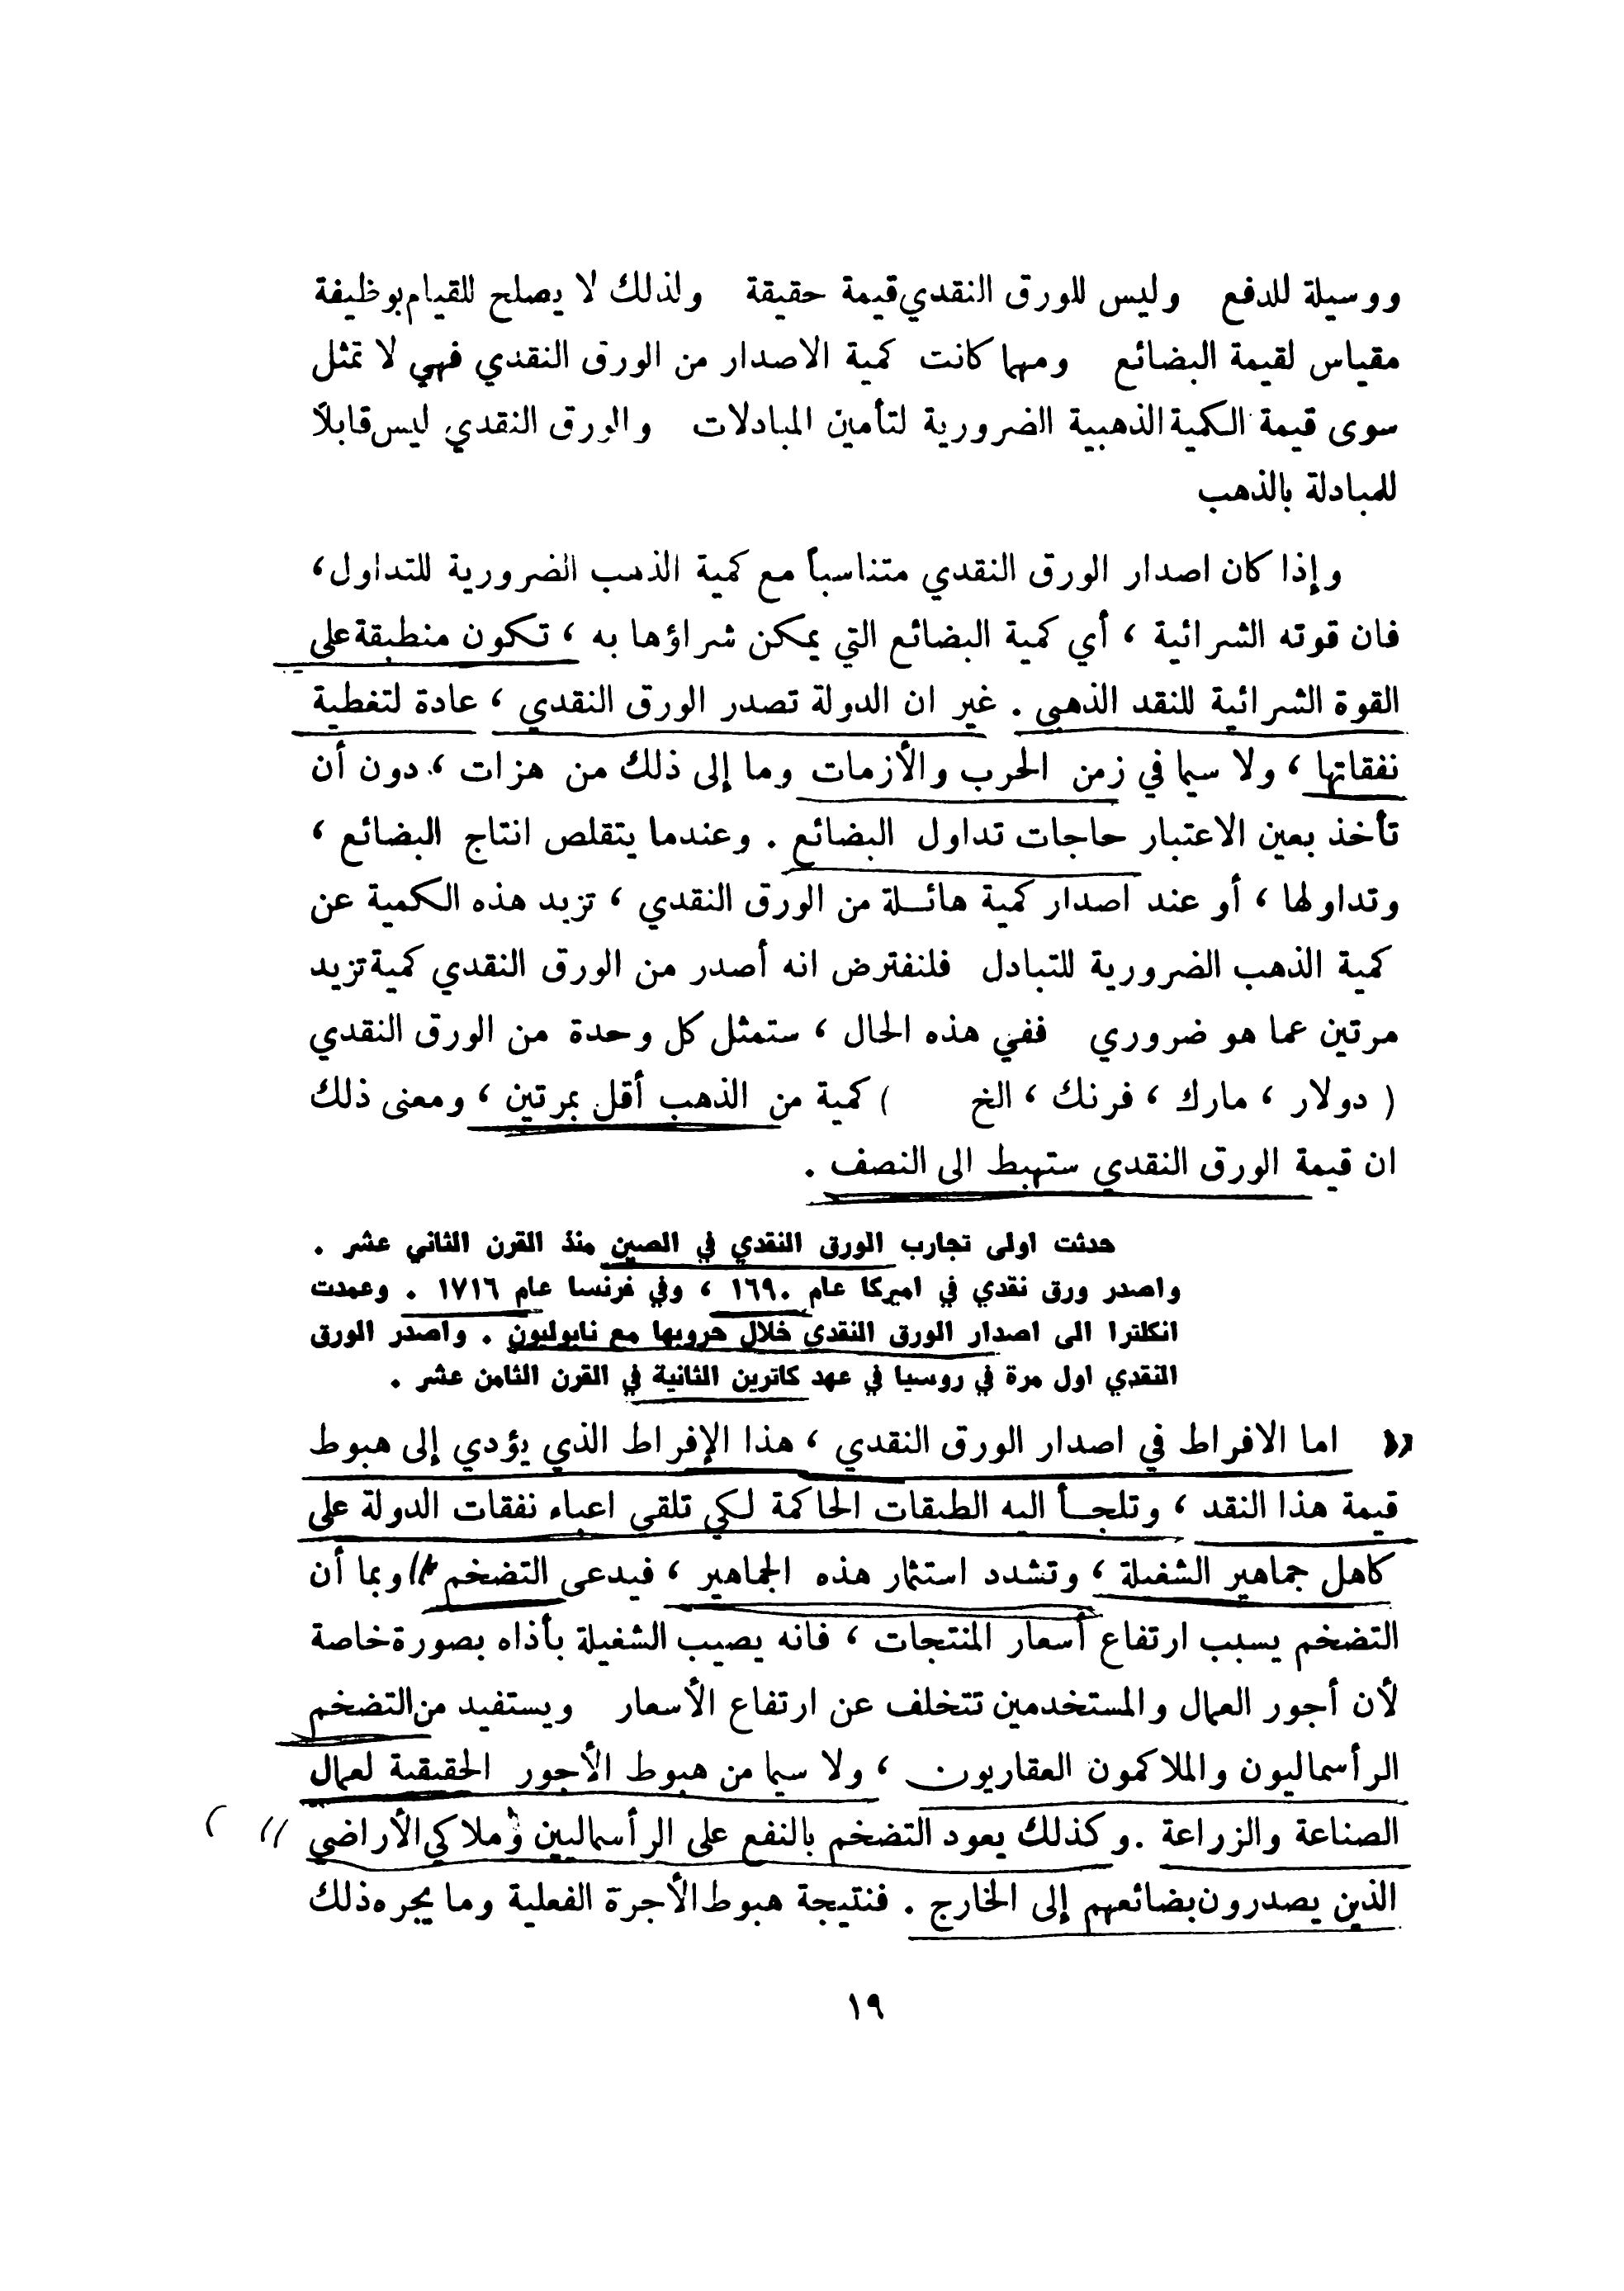 ووسيلة للدفع وليس للورق النقدي قيمة حقيقة ولذلك لا يصلح للقيام بوظيفة
مقياس لقيمة البضائع ومهما كانت كمية الاصدار من الورق النقدي فهي لا تمثل
سوى قيمة الكمية الذهبية الضرورية لتأمين المبادلات والورق النقدي ليس قابلاً
للمبادلة بالذهب
وإذا كان اصدار الورق النقدي متناسباً مع كمية الذهب الضرورية للتداول ،
فان قوته الشرائية ، أي كمية البضائع التي يمكن شراؤها به ، تكون منطبقة على
القوة الشرائية للنقد الذهبي . غير ان الدولة تصدر الورق النقدي ، عادة لتغطية
نفقاتها ، ولا سيما في زمن الحرب والأزمات وما إلى ذلك من هزات ، دون أن
تأخذ بعين الاعتبار حاجات تداول البضائع . وعندما يتقلص انتاج البضائع ،
وتداولها ، أو عند اصدار كمية هائلة من الورق النقدي ، تزيد هذه الكمية عن
كمية الذهب الضرورية للتبادل فلنفترض انه أصدر من الورق النقدي كمية تزيد
مرتين عما هو ضروري ففي هذه الحال ، ستمثل كل وحدة من الورق النقدي
( دولار ، مارك ، فرنك ، الخ ) كمية من الذهب أقل بمرتين ، ومعنى ذلك
ان قيمة الورق النقدي ستهبط الى النصف .
حدثت اولى تجارب الورق النقدي في الصين منذ القرن الثاني عشر .
واصدر ورق نقدي في اميركا عام ١٦٩٠ ، وفي فرنسا عام ١٧١٦ . وعمدت
انكلترا الى اصدار الورق النقدي خلال حروبها مع نابوليون . واصدر الورق
النقدي اول مرة في روسيا في عهد كاترين الثانية في القرن الثامن عشر .
اما الافراط في اصدار الورق النقدي ، هذا الإفراط الذي يؤدي إلى هبوط
قيمة هذا النقد ، وتلجأ اليه الطبقات الحاكمة لكي تلقي اعباء نفقات الدولة على
كاهل جماهير الشغيلة ، وتشدد استثمار هذه الجماهير ، فيدعى التضخم وبما أن
التضخم يسبب ارتفاع أسعار المنتجات ، فانه يصيب الشغيلة بأذاه بصورة خاصة
لأن أجور العمال والمستخدمين تتخلف عن ارتفاع الأسعار ويستفيد من التضخم
الرأسماليون والملاكون العقاريون ، ولا سيما من هبوط الأجور الحقيقية لعمال
الصناعة والزراعة . وكذلك يعود التضخم بالنفع على الرأسماليين وملاكي الأراضي
الذين يصدرون بضائعهم إلى الخارج . فنتيجة هبوط الأجرة الفعلية وما يجره ذلك
١٩